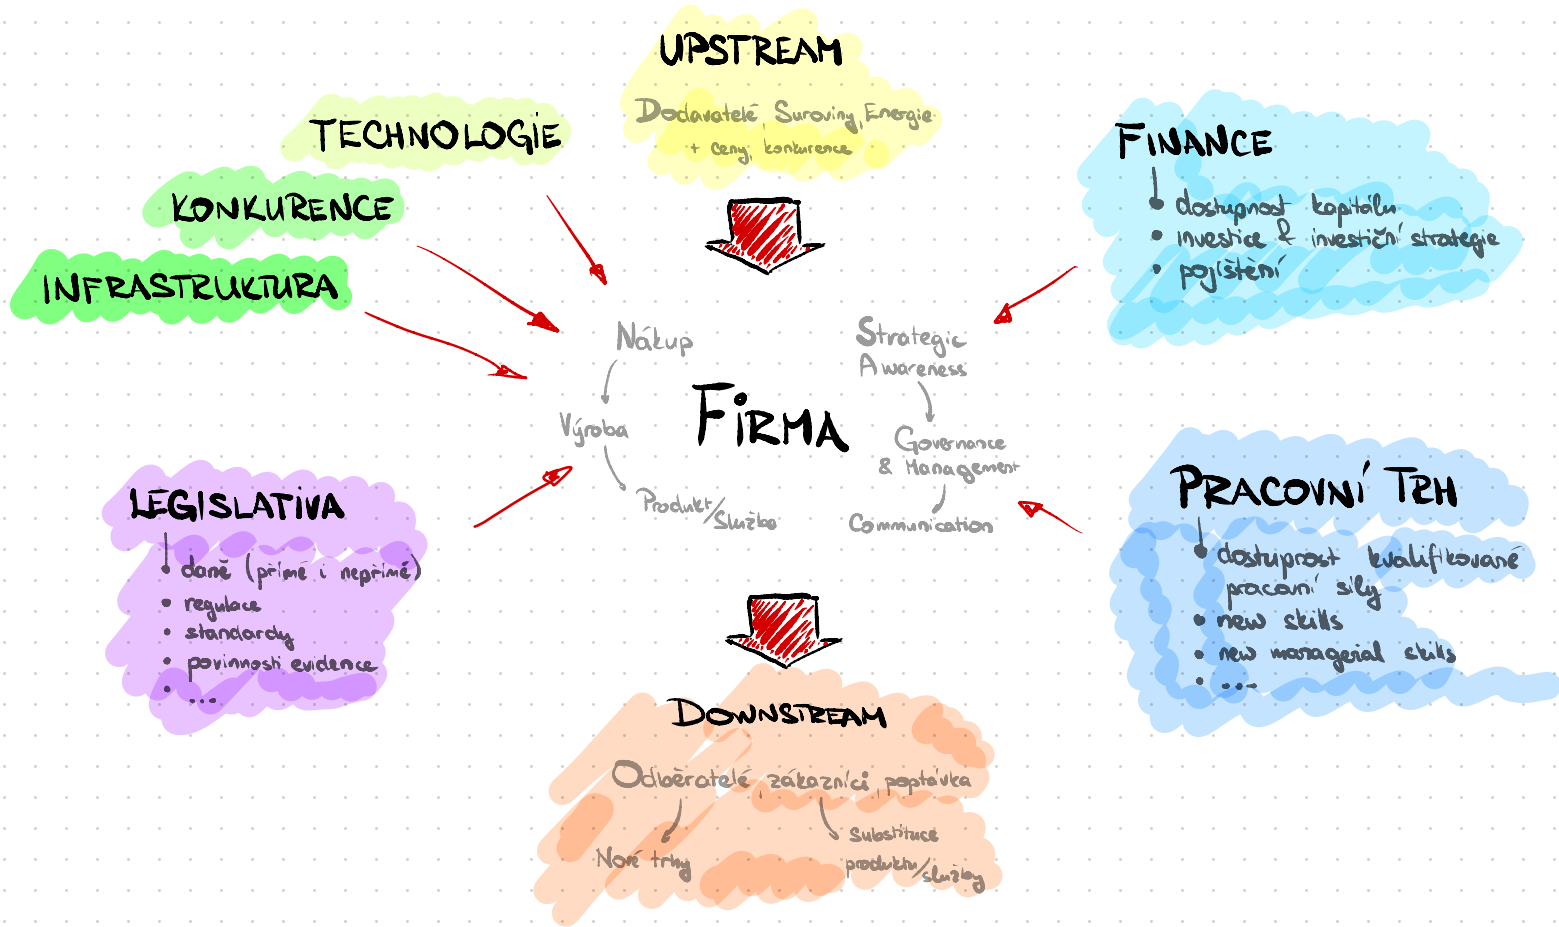 UPSTREAM
Dodavatelé, Suroviny, Energie
+ ceny, konkurence
TECHNOLOGIE
KONKURENCE
INFRASTRUKTURA
FINANCE
• dostupnost kapitálu
• investice & investiční strategie
• pojištění
Nákup
Výroba
Produkt/
Služba
FiRMA
Strategic
Awareness
Governance
& Management
Communication
LEGISLATIVA
• daně (přímé i nepřímé)
• regulace
• standardy
• povinnosti evidence
• ...
PRACOVNÍ TRH
• dostupnost kvalifikované
pracovní síly
• new skills
• new managerial skills
• ...
DOWNSTREAM
Odběratelé, zákazníci, poptávka
Nové trhy
Substituce
produktu/
služby